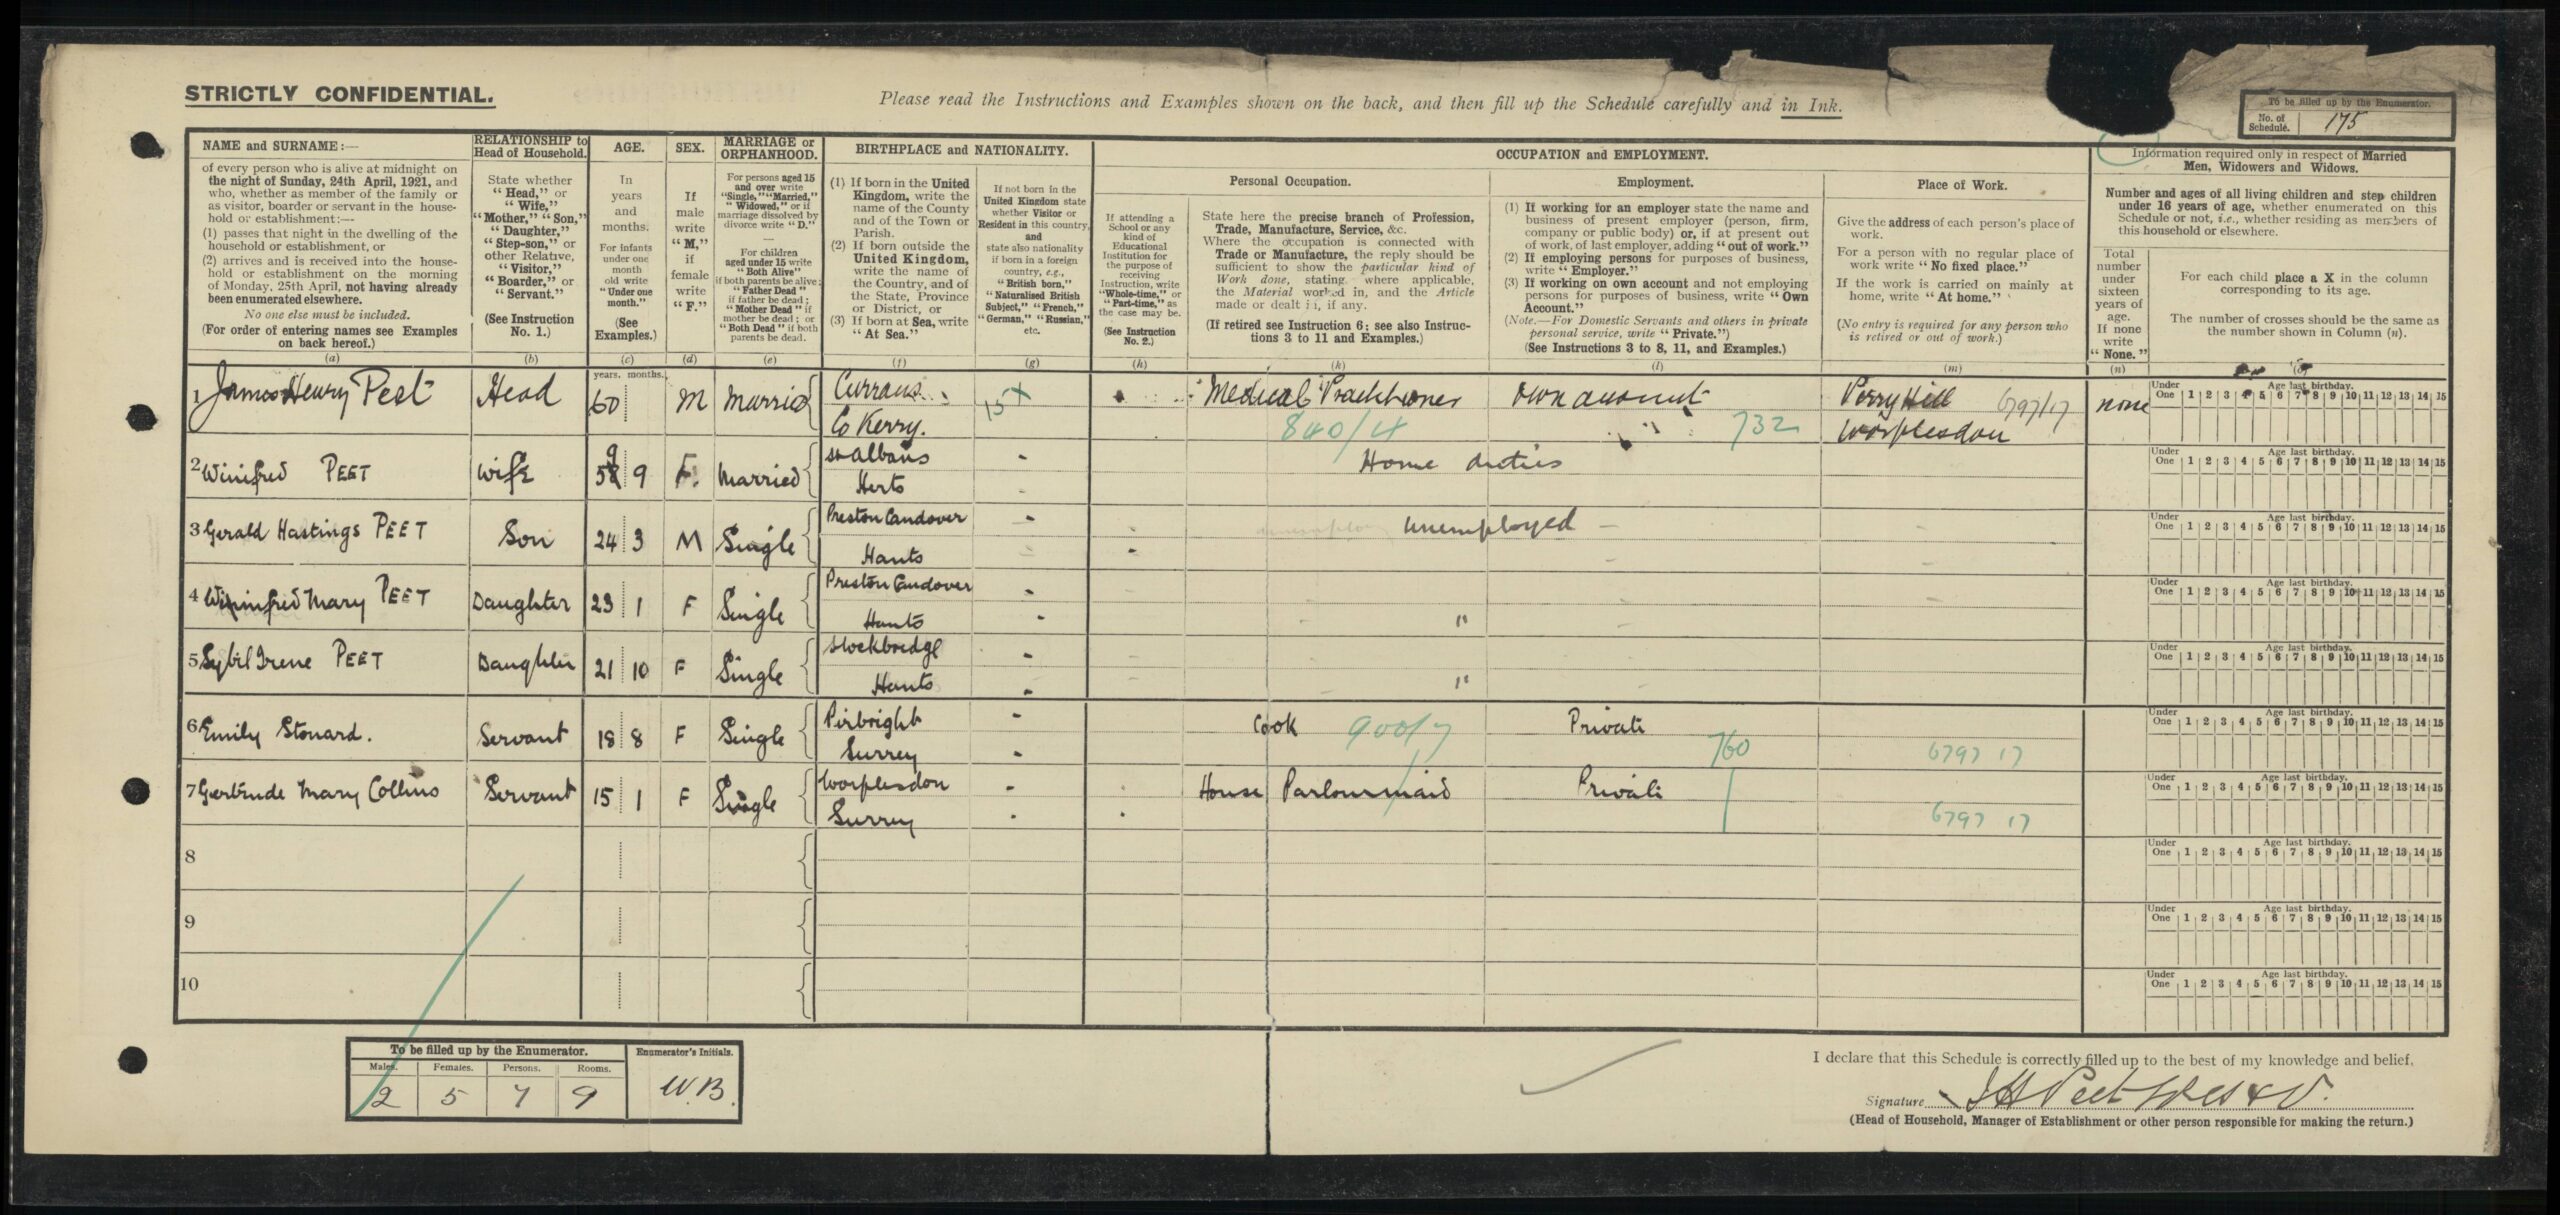 STRICTLY CONFIDENTIAL.
Please read the Instructions and Examples shown on the back, and then fill up the Schedule carefully and in Ink.
To be filled up by the Enumerator.
No. of Schedule. 175
NAME and SURNAME:—
of every person who is alive at midnight on
the night of Sunday, 24th April, 1921, and
who, whether as member of the family or
as visitor, boarder or servant in the house-
hold or establishment:—
(1) passes that night in the dwelling of the
household or establishment, or
(2) arrives and is received into the house-
hold or establishment on the morning
of Monday, 25th April, not having already
been enumerated elsewhere.
No one else must be included.
(For order of entering names see Examples
on back hereof.)
(a)
RELATIONSHIP to
Head of Household.
State whether
"Head," or
"Wife,"
"Mother," "Son,"
"Daughter,"
"Step-son," or
other Relative,
"Visitor,"
"Boarder," or
"Servant."
(See Instruction
No. 1.)
(b)
AGE.
In
years
and
months.
For infants
under one
month
old write
"Under one
month."
(See
Examples.)
(c)
SEX.
If
male
write
"M,"
if
female
write
"F."
(d)
MARRIAGE or
ORPHANHOOD.
For persons aged 15
and over write
"Single," "Married,"
"Widowed," or if
marriage dissolved by
divorce write "D."
—
For children
aged under 15 write
"Both Alive"
if both parents be alive;
"Father Dead"
if father be dead;
"Mother Dead" if
mother be dead; or
"Both Dead" if both
parents be dead.
(e)
BIRTHPLACE and NATIONALITY.
(1) If born in the United
Kingdom, write the
name of the County
and of the Town or
Parish.
(2) If born outside the
United Kingdom,
write the name of
the Country, and of
the State, Province
or District, or
(3) If born at Sea, write
"At Sea."
(f)
If not born in the
United Kingdom state
whether Visitor or
Resident in this country,
and
state also nationality
if born in a foreign
country, e.g.,
"British born,"
"Naturalised British
Subject," "French,"
"German," "Russian,"
etc.
(g)
OCCUPATION and EMPLOYMENT.
If attending a
School or any
kind of
Educational
Institution for
the purpose of
receiving
Instruction, write
"Whole-time," or
"Part-time," as
the case may be.
(See Instruction
No. 2.)
(h)
Personal Occupation.
State here the precise branch of Profession,
Trade, Manufacture, Service, &c.
Where the occupation is connected with
Trade or Manufacture, the reply should be
sufficient to show the particular kind of
Work done, stating, where applicable,
the Material worked in, and the Article
made or dealt in, if any.
(If retired see Instruction 6; see also Instruc-
tions 3 to 11 and Examples.)
(k)
Employment.
(1) If working for an employer state the name and
business of present employer (person, firm,
company or public body) or, if at present out
of work, of last employer, adding "out of work."
(2) If employing persons for purposes of business,
write "Employer."
(3) If working on own account and not employing
persons for purposes of business, write "Own
Account."
(Note.—For Domestic Servants and others in private
personal service, write "Private.")
(See Instructions 3 to 8, 11, and Examples.)
(l)
Place of Work.
Give the address of each person's place of
work.
For a person with no regular place of
work write "No fixed place."
If the work is carried on mainly at
home, write "At home."
(No entry is required for any person who
is retired or out of work.)
(m)
Information required only in respect of Married
Men, Widowers and Widows.
Number and ages of all living children and step children
under 16 years of age, whether enumerated on this
Schedule or not, i.e., whether residing as members of
this household or elsewhere.
Total
number
under
sixteen
years of
age.
If none
write
"None."
(n)
For each child place a X in the column
corresponding to its age.
The number of crosses should be the same as
the number shown in Column (n).
(o)
years. months.
1 James Henry Peet Head 60 M Married Currans 15+ Medical Practitioner Own account Perry Hill 6797/17 none
Co Kerry. 840/4 732 Worplesdon
Under One Age last birthday. 1 2 3 4 5 6 7 8 9 10 11 12 13 14 15
2 Winifred PEET Wife 59 9 F. Married St Albans - Home duties
Herts -
Under One Age last birthday. 1 2 3 4 5 6 7 8 9 10 11 12 13 14 15
3 Gerald Hastings PEET Son 24 3 M Single Preston Candover - unemployed -
Hants
Under One Age last birthday. 1 2 3 4 5 6 7 8 9 10 11 12 13 14 15
4 Winifred Mary PEET Daughter 23 1 F Single Preston Candover -
Hants - "
Under One Age last birthday. 1 2 3 4 5 6 7 8 9 10 11 12 13 14 15
5 Sybil Irene PEET Daughter 21 10 F Single Stockbridge -
Hants - "
Under One Age last birthday. 1 2 3 4 5 6 7 8 9 10 11 12 13 14 15
6 Emily Stonard. Servant 18 8 F Single Pirbright - Cook 900/7 Private
Surrey - 760 6797 17
Under One Age last birthday. 1 2 3 4 5 6 7 8 9 10 11 12 13 14 15
7 Gertrude Mary Collins Servant 15 1 F Single Worplesdon - House Parlourmaid Private
Surrey - 6797 17
Under One Age last birthday. 1 2 3 4 5 6 7 8 9 10 11 12 13 14 15
8
Under One Age last birthday. 1 2 3 4 5 6 7 8 9 10 11 12 13 14 15
9
Under One Age last birthday. 1 2 3 4 5 6 7 8 9 10 11 12 13 14 15
10
Under One Age last birthday. 1 2 3 4 5 6 7 8 9 10 11 12 13 14 15
To be filled up by the Enumerator.
Males. Females. Persons. Rooms.
2 5 7 9
Enumerator's Initials.
W.B.
I declare that this Schedule is correctly filled up to the best of my knowledge and belief.
Signature JH Peet
(Head of Household, Manager of Establishment or other person responsible for making the return.)